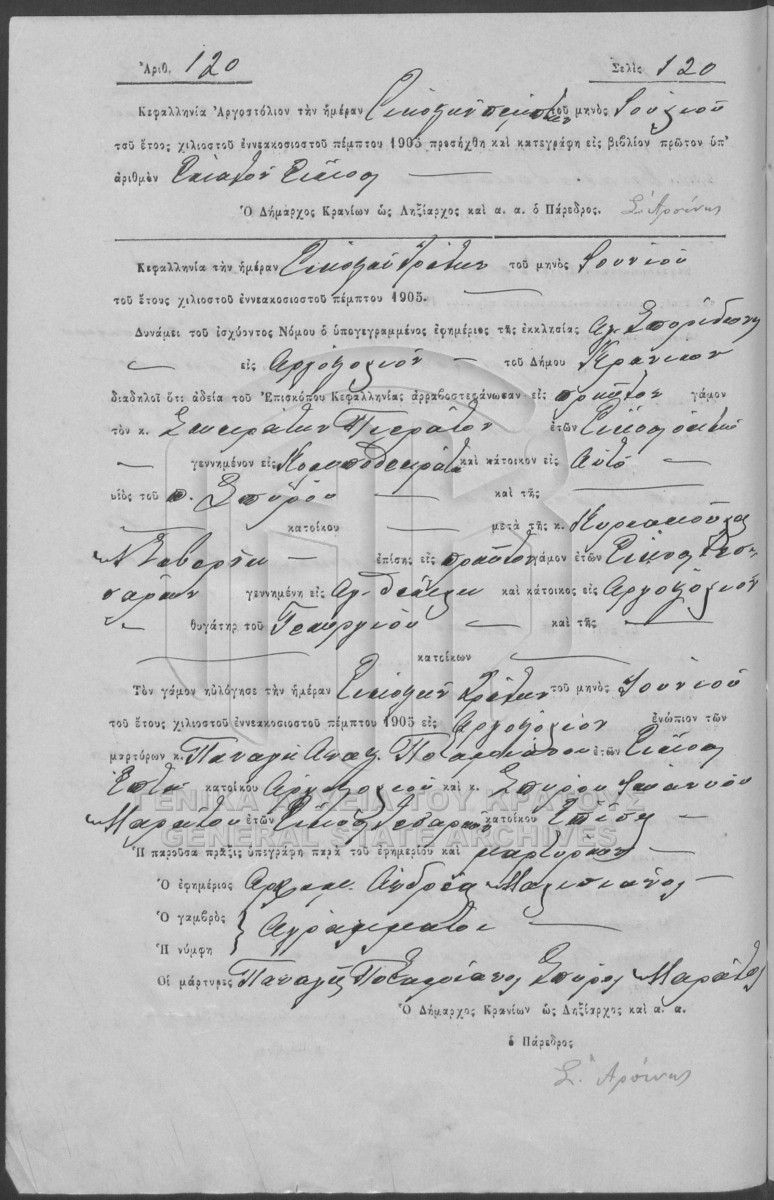 Ἀριθ. 120 Σελὶς 120
Κεφαλληνία Ἀργοστόλιον τὴν ἡμέραν Εἰκοστὴν πέμπτην τοῦ μηνὸς Ἰουλίου
τοῦ ἔτους χιλιοστοῦ ἐννεακοσιοστοῦ πέμπτου 1905 προσήχθη καὶ κατεγράφη εἰς βιβλίον πρῶτον ὑπ'
ἀριθμὸν Ἑκατὸν Εἴκοσι
Ὁ Δήμαρχος Κρανίων ὡς Ληξίαρχος καὶ α. α. ὁ Πάρεδρος.
Κεφαλληνία τὴν ἡμέραν Εἰκοστὴν Τρίτην τοῦ μηνὸς Ἰουνίου
τοῦ ἔτους χιλιοστοῦ ἐννεακοσιοστοῦ πέμπτου 1905.
Δυνάμει τοῦ ἰσχύοντος Νόμου ὁ ὑπογεγραμμένος ἐφημέριος τῆς ἐκκλησίας Αγ. Σπυρίδωνος
εἰς Αργοστόλιον τοῦ Δήμου Κρανίων
διαδηλοῖ ὅτι ἀδεία τοῦ Ἐπισκόπου Κεφαλληνίας ἀρραβοστεφάνωσαν εἰς πρῶτον γάμον
τὸν κ. Σωκράτην Πιεράτον ἐτῶν Εἴκοσι ὀκτὼ
γεννημένον εἰς Κουρουποκράτα καὶ κάτοικον εἰς Αὐτὸ
υἱὸς τοῦ π. Σπύρου καὶ τῆς
κατοίκου μετὰ τῆς κ. Κυριακούλα
ἐπίσης εἰς πρῶτον γάμον ἐτῶν Εἴκοσι τεσ-
σάρων γεννημένη εἰς καὶ κάτοικος εἰς Αργοστόλιον
θυγάτηρ τοῦ Γεωργίου καὶ τῆς
κατοίκων
Τὸν γάμον ηὐλόγησε τὴν ἡμέραν Εἰκοστὴν Τρίτην τοῦ μηνὸς Ἰουνίου
τοῦ ἔτους χιλιοστοῦ ἐννεακοσιοστοῦ πέμπτου 1905 εἰς Αργοστόλιον ἐνώπιον τῶν
μαρτύρων κ. Παναγῆ Αναστ. Ποταμιάνου ἐτῶν Εἴκοσι
Ἑπτὰ κατοίκου Αργοστολίου καὶ κ. Σπύρου Ἰωάννου
Μαράτου ἐτῶν Εἴκοσι τεσσάρων κατοίκου Ἐπίσης
ΓΕΝΙΚΑ ΑΡΧΕΙΑ ΤΟΥ ΚΡΑΤΟΥΣ
GENERAL STATE ARCHIVES
Ἡ παροῦσα πρᾶξις ὑπογράφη παρὰ τοῦ ἐφημερίου καὶ μαρτύρων
Ὁ ἐφημέριος Αρχιμ. Ανδρέα
Ὁ γαμβρὸς
Ἡ νύμφη } Αγράμματοι
Οἱ μάρτυρες Παναγῆς Ποταμιάνος Σπύρος Μαράτος
Ὁ Δήμαρχος Κρανίων ὡς Ληξίαρχος καὶ α. α.
ὁ Πάρεδρος